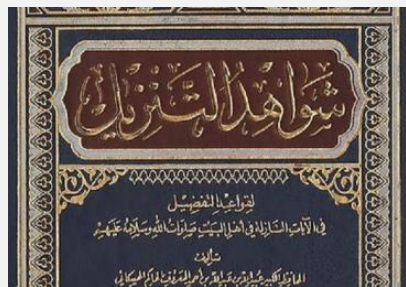 شَوَاهِدُ التَّنزِيلِ
لِقَوَاعِدِ التَّفضِيل
فِي الآيَاتِ النَّازِلَةِ فِي أَهْلِ البَيْتِ صَلَوَاتُ اللهِ وَسَلَامُهُ عَلَيْهِمْ
تأليف
الحافظ الكبير عبيد الله بن عبد الله بن أحمد المعروف بالحاكم الحسكاني